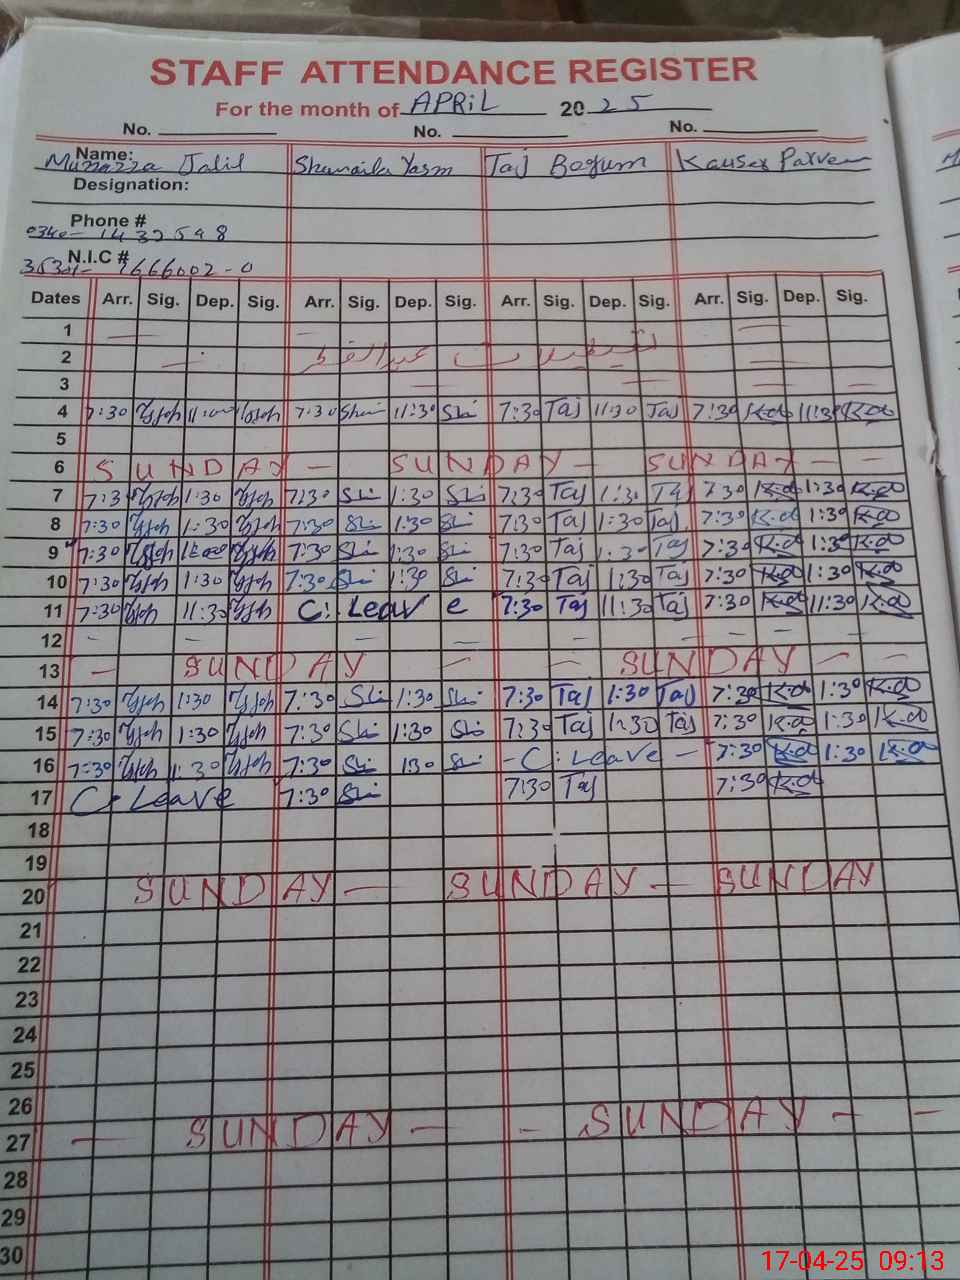 STAFF ATTENDANCE REGISTER
For the month of APRiL 2025
No. No. No.
Name: Munazza Jalil Shumaila Yasm Taj Begum Kauser Parveen
Designation:
Phone #
0340- 1432598
N.I.C #
Dates Arr. Sig. Dep. Sig. Arr. Sig. Dep. Sig. Arr. Sig. Dep. Sig. Arr. Sig. Dep. Sig.
1
2 تعطیلات عیدالفطر
3
4 7:30 7:30 11:30 7:30 Taj 11:30 Taj 7:30 K.a 11:30 K.a
5
6 SUNDAY – SUNDAY – SUNDAY – –
7 7:3 1:30 7:30 Sh 1:30 Sh 7:30 Taj 1:30 Taj 7:30 K.a 1:30 K.a
8 7:30 1:30 7:30 Sh 1:30 Sh 7:30 Taj 1:30 Taj 7:30 K.a 1:30 K.a
9 7:30 7:30 Sh 1:30 Sh 7:30 Taj 1:30 Taj 7:30 K.a 1:30 K.a
10 7:30 1:30 7:30 Sh 1:30 Sh 7:30 Taj 1:30 Taj 7:30 K.a 1:30 K.a
11 7:30 11:30 C: Leave 7:30 Taj 11:30 Taj 7:30 K.a 11:30 K.a
12
13 – SUNDAY – – SUNDAY – –
14 7:30 1:30 7:30 Sh 1:30 Sh 7:30 Taj 1:30 Taj 7:30 K.a 1:30 K.a
15 7:30 1:30 7:30 Sh 1:30 Sh 7:30 Taj 1:30 Taj 7:30 K.a 1:30 K.a
16 7:30 1:30 7:30 Sh 130 Sh - C: Leave - 7:30 K.a 1:30 K.a
17 C: Leave 7:30 Sh 7:30 Taj 7:30 K.a
18
19
20 SUNDAY – SUNDAY – SUNDAY
21
22
23
24
25
26
27 – SUNDAY – - SUNDAY – –
28
29
30
17-04-25 09:13